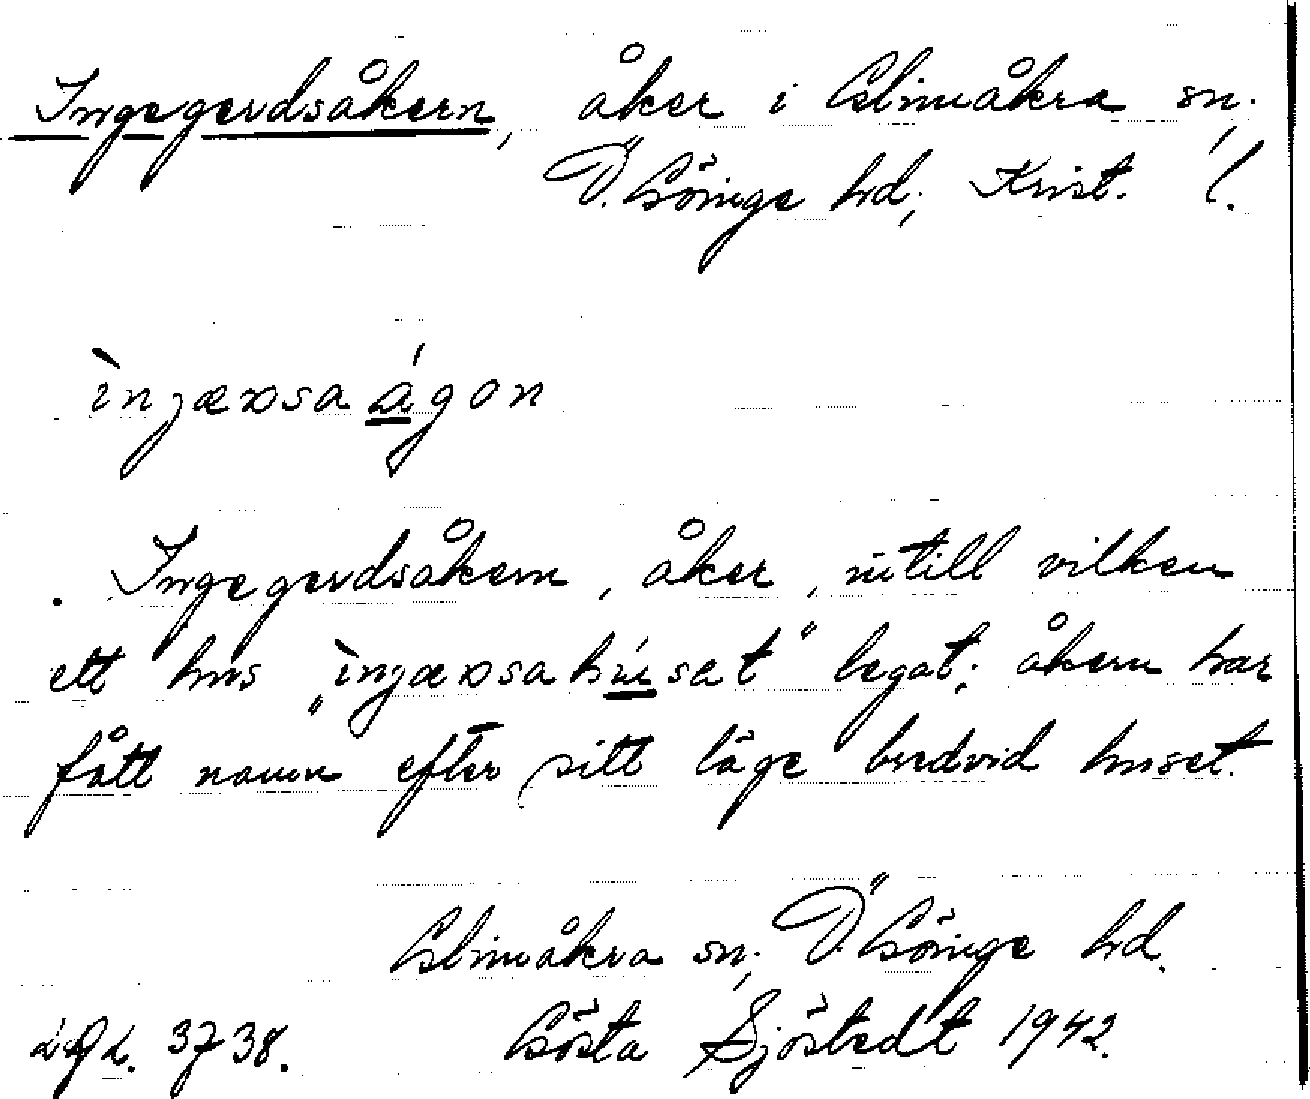 Ingegerdsåkern, åker i Glimåkra sn;
Ö. Göinge hd; Krist. l.
ìnjæʀsa ágɘn
Ingegerdsåkern, åker, intill vilken
ett hus „ìnjæʀsahúsət” legat; åkern har
fått namn efter sitt läge bredvid huset.
Glimåkra sn; Ö. Göinge hd.
3738. Gösta Sjöstedt 1942.